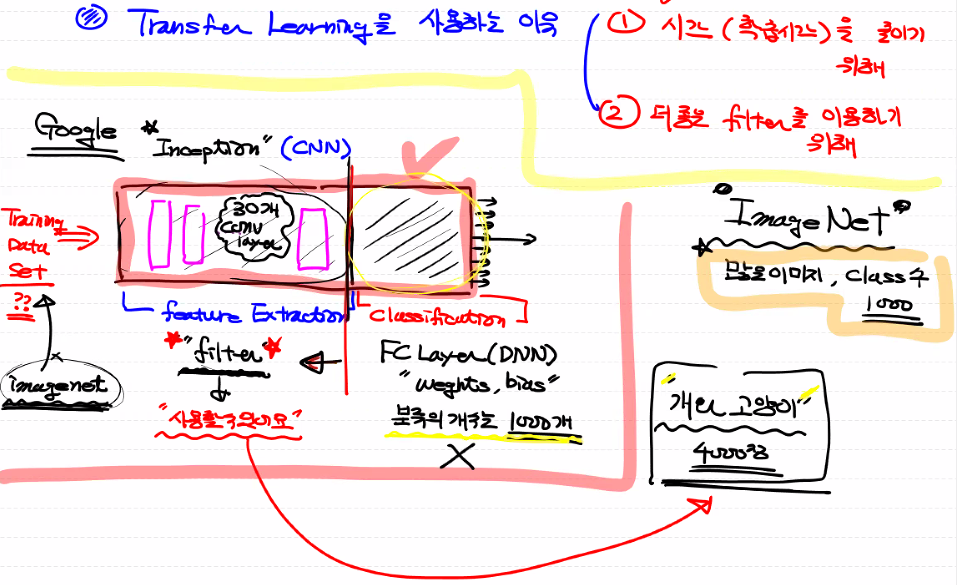 Transfer Learning을 사용하는 이유
① 시간 (학습시간)을 줄이기
위해
② 더좋은 filter를 이용하기
위해
Google
"Inception" (CNN)
Training
Data
Set
??
imagenet
30개
conv
layer
feature Extraction
classification
"filter"
"사용할수있어요"
FC Layer (DNN)
"weghts, bias"
분류의 개수는 1000개
"ImageNet"
많은이미지, Class수
1000
"개와 고양이"
4000장